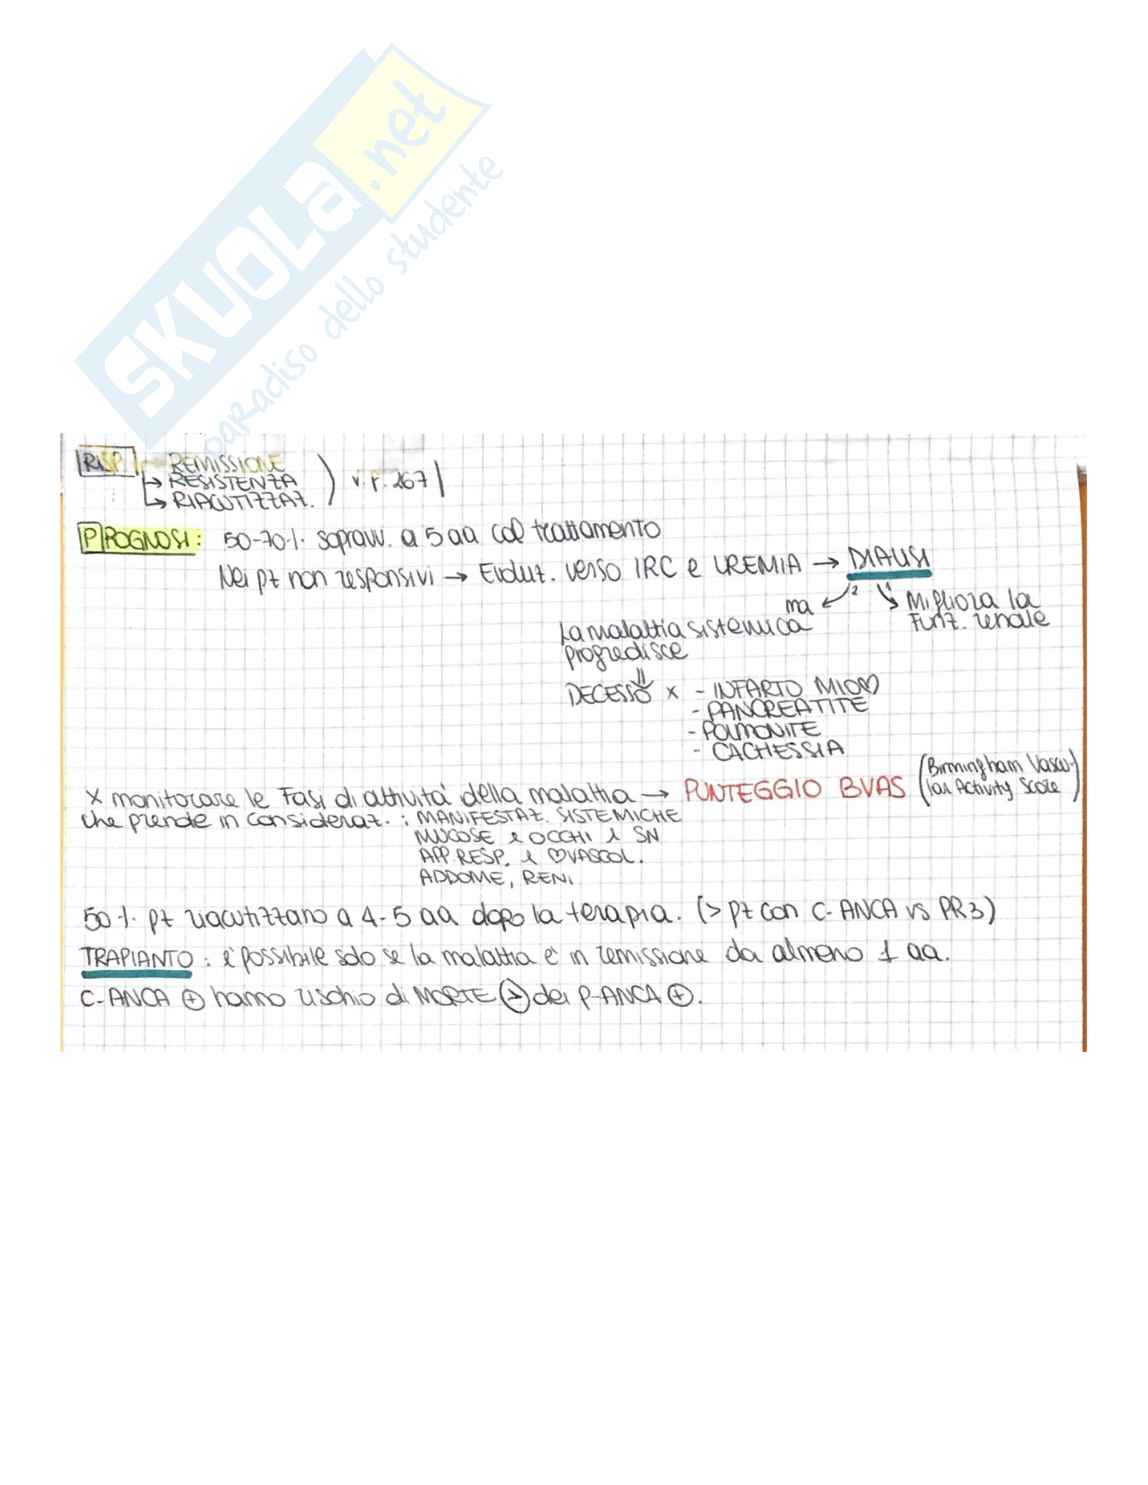 SKUOLA.net
paradiso dello studente
RISP. → REMISSIONE
→ RESISTENZA
→ RIACUTIZZAZ. ) v. p. 267
PROGNOSI: 50-70% sopravv. a 5 aa col trattamento
Nei pt non responsivi → Evoluz. verso IRC e UREMIA → DIALISI
ma ↙2 ↘1 Migliora la
funz. renale
La malattia sistemica
progredisce
⇓
DECESSO x - INFARTO MIO♡
- PANCREATITE
- POLMONITE
- CACHESSIA
x monitorare le Fasi di attività della malattia → PUNTEGGIO BVAS (Birmingham Vascu-
lar Activity Score)
che prende in consideraz. : MANIFESTAZ. SISTEMICHE
MUCOSE e OCCHI e SN
APP. RESP. e ♡VASCOL.
ADDOME, RENI
50% pt riacutizzano a 4-5 aa dopo la terapia. (> pt con C-ANCA vs PR3)
TRAPIANTO : è possibile solo se la malattia è in remissione da almeno 1 aa.
C-ANCA ⊕ hanno rischio di MORTE > dei P-ANCA ⊕.